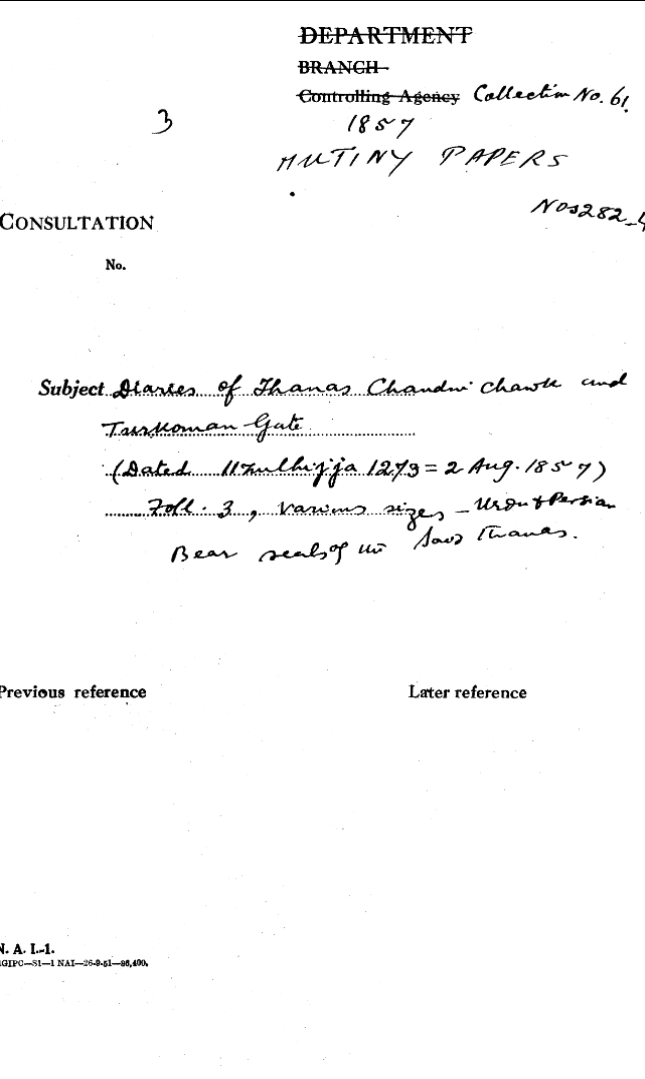 DEPARTMENT
BRANCH
Controlling Agency Collection No. 61.
3
1857
MUTINY PAPERS
Nos 282-4
CONSULTATION
No.
Subject Diaries of Thanas Chandni Chawk and
Turkoman Gate
(Dated 11 Zulhijja 1273 = 2 Aug. 1857)
Foll. 3, various sizes - Urdu & Persian
Bear seals of the Thanas.
Previous reference
Later reference
N. A. I.-1.
GIPC—S1—1 NAI—26-9-51—